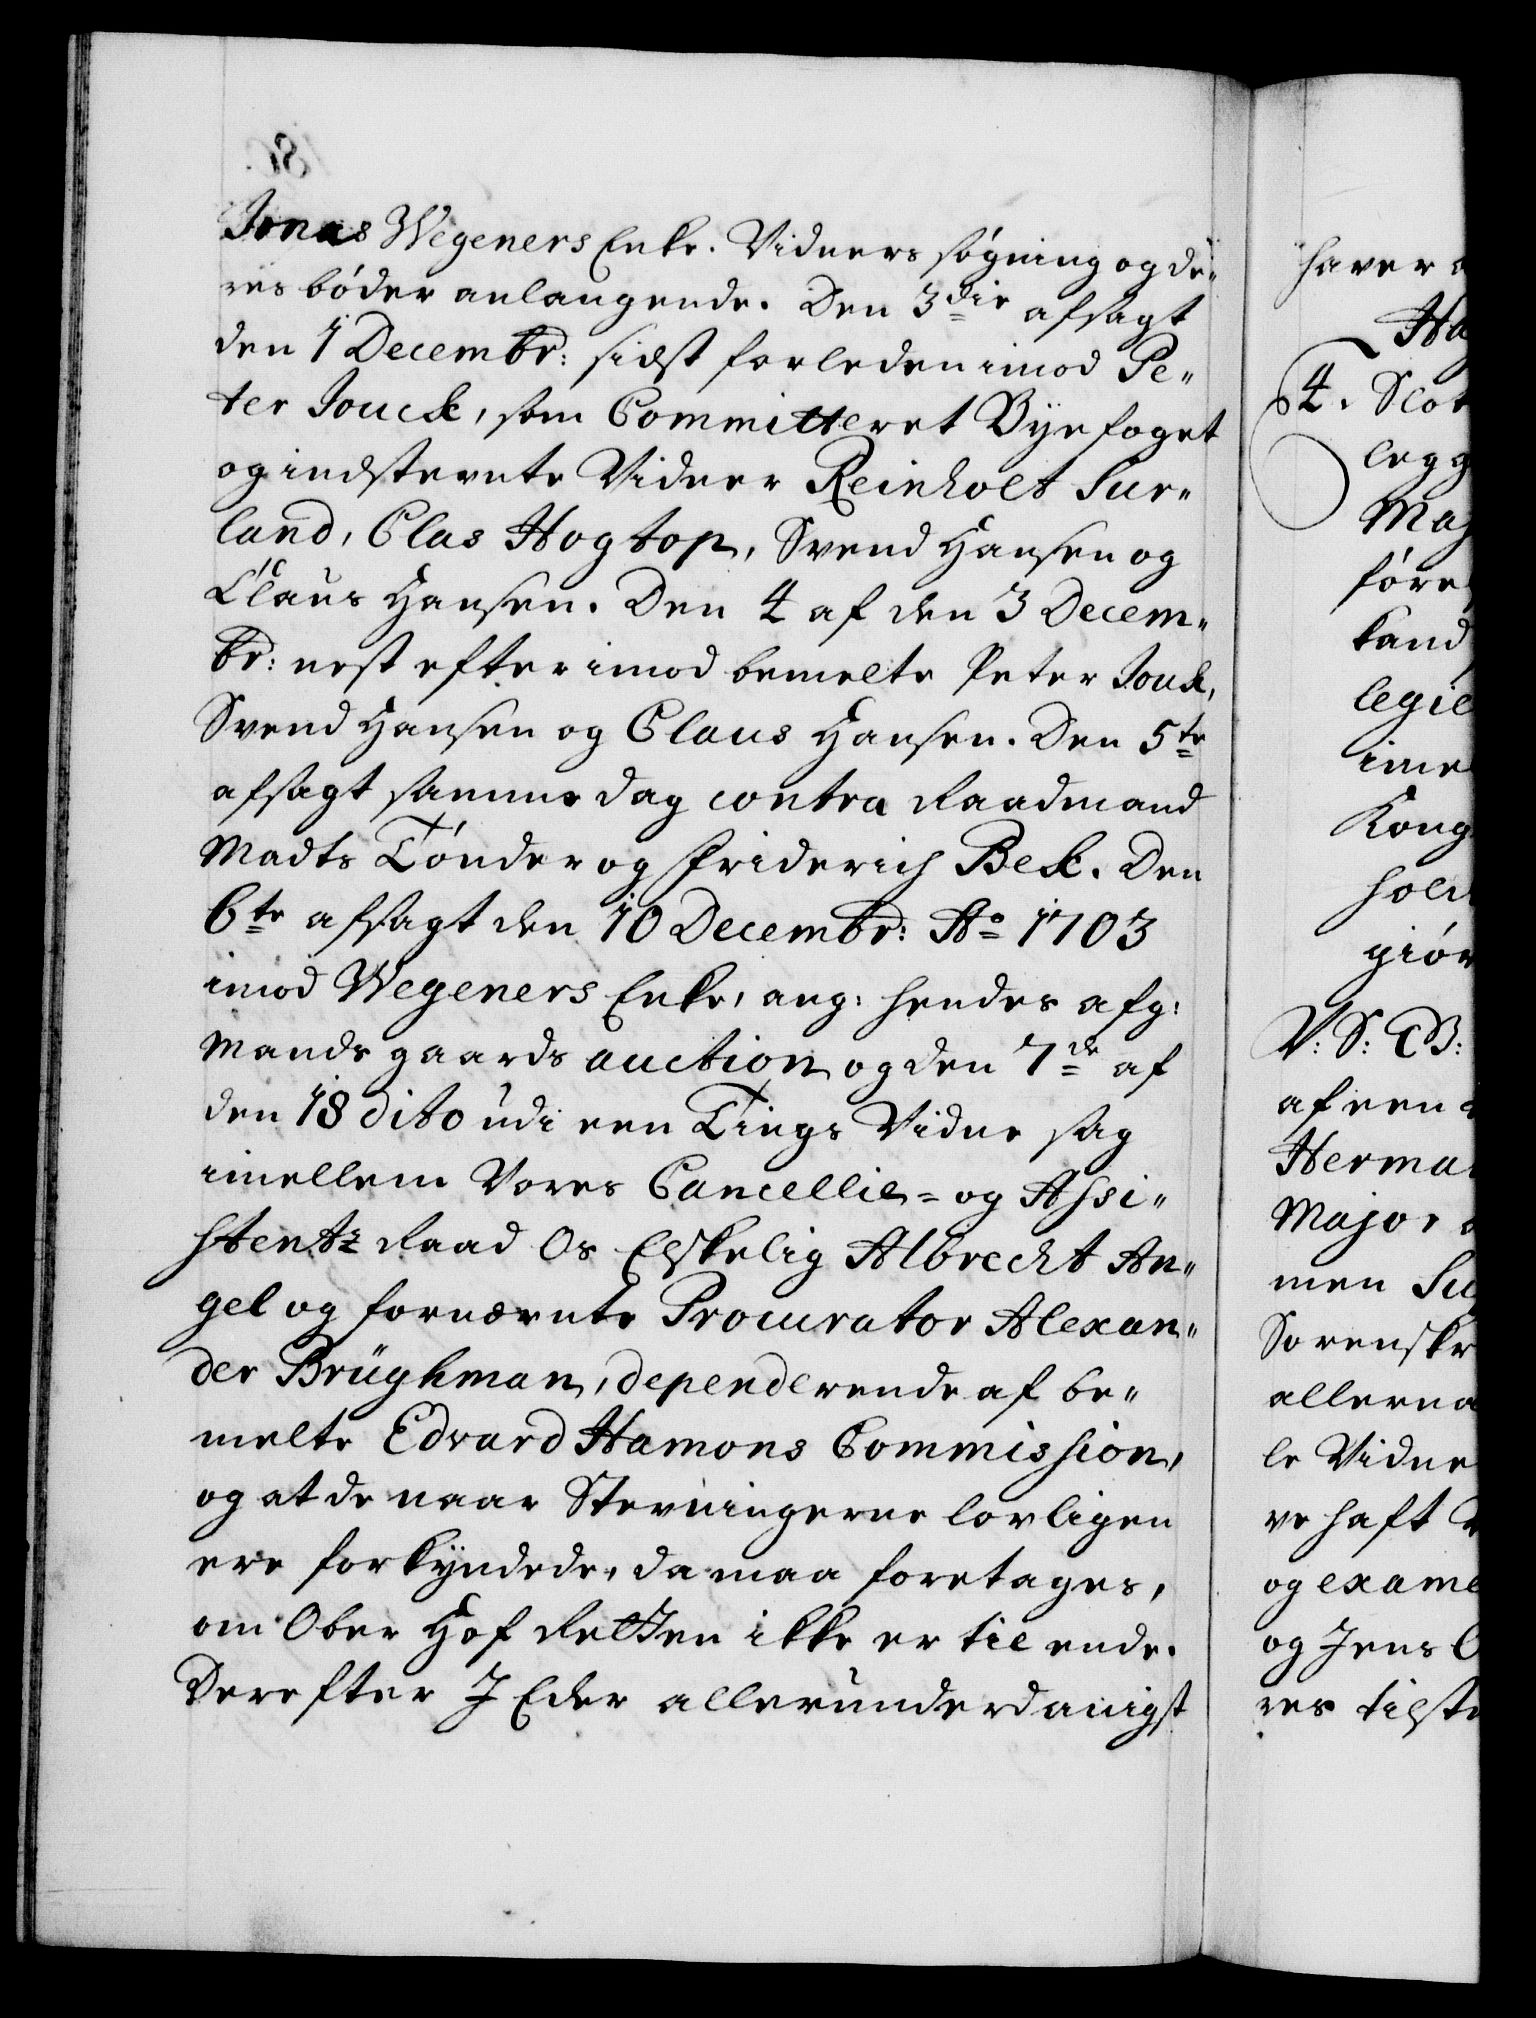 Jonas Wegeners Enke. Vidners søgning og de„
res bøder anlangende. Den 3die afsagt
den 1 Decembr: sidst forleden imod Pe„
ter Jouck, som Committeret Byefoget
og indstevnte Vidner Reinholt Sur„
land, Clas Hogtop, Svend Hansen og
Claus Hansen. Den 4 af den 3 Decem„
br: nest efter imod bemelte Peter Jouk,
Svend Hansen og Claus Hansen. Den 5te
afsagt samme dag contra Raadmand
Madts Tønder og Friderich Bek. Den
6te afsagt den 10 Decembr: Ao 1703
imod Wegeners Enke, ang: hendes afg:
Mands gaards auction og den 7de af
den 18 dito udi een Tings Vidne sag
imellem Vores Cancellie= og Assi„
stentz Raad Os Elskelig Albrecht An„
gel og fornævnte Procurator Alexan„
der Brüghman, dependerende af be„
melte Edvard Hamons Commission,
og at de naar Stevningerne lovligen
ere forkyndede, da maa foretages,
om Ober Hof Retten ikke er til ende.
Derefter J Eder allerunderdanigst
haver
4. Slot
legg
Maj
føre
kand
legie
ime
Kong
hold
giør
V: S: B:
af een
Herman
Major
men
Sorenskr
allerna
le Vidne
ve haft
og exame
og Jens
res tilst